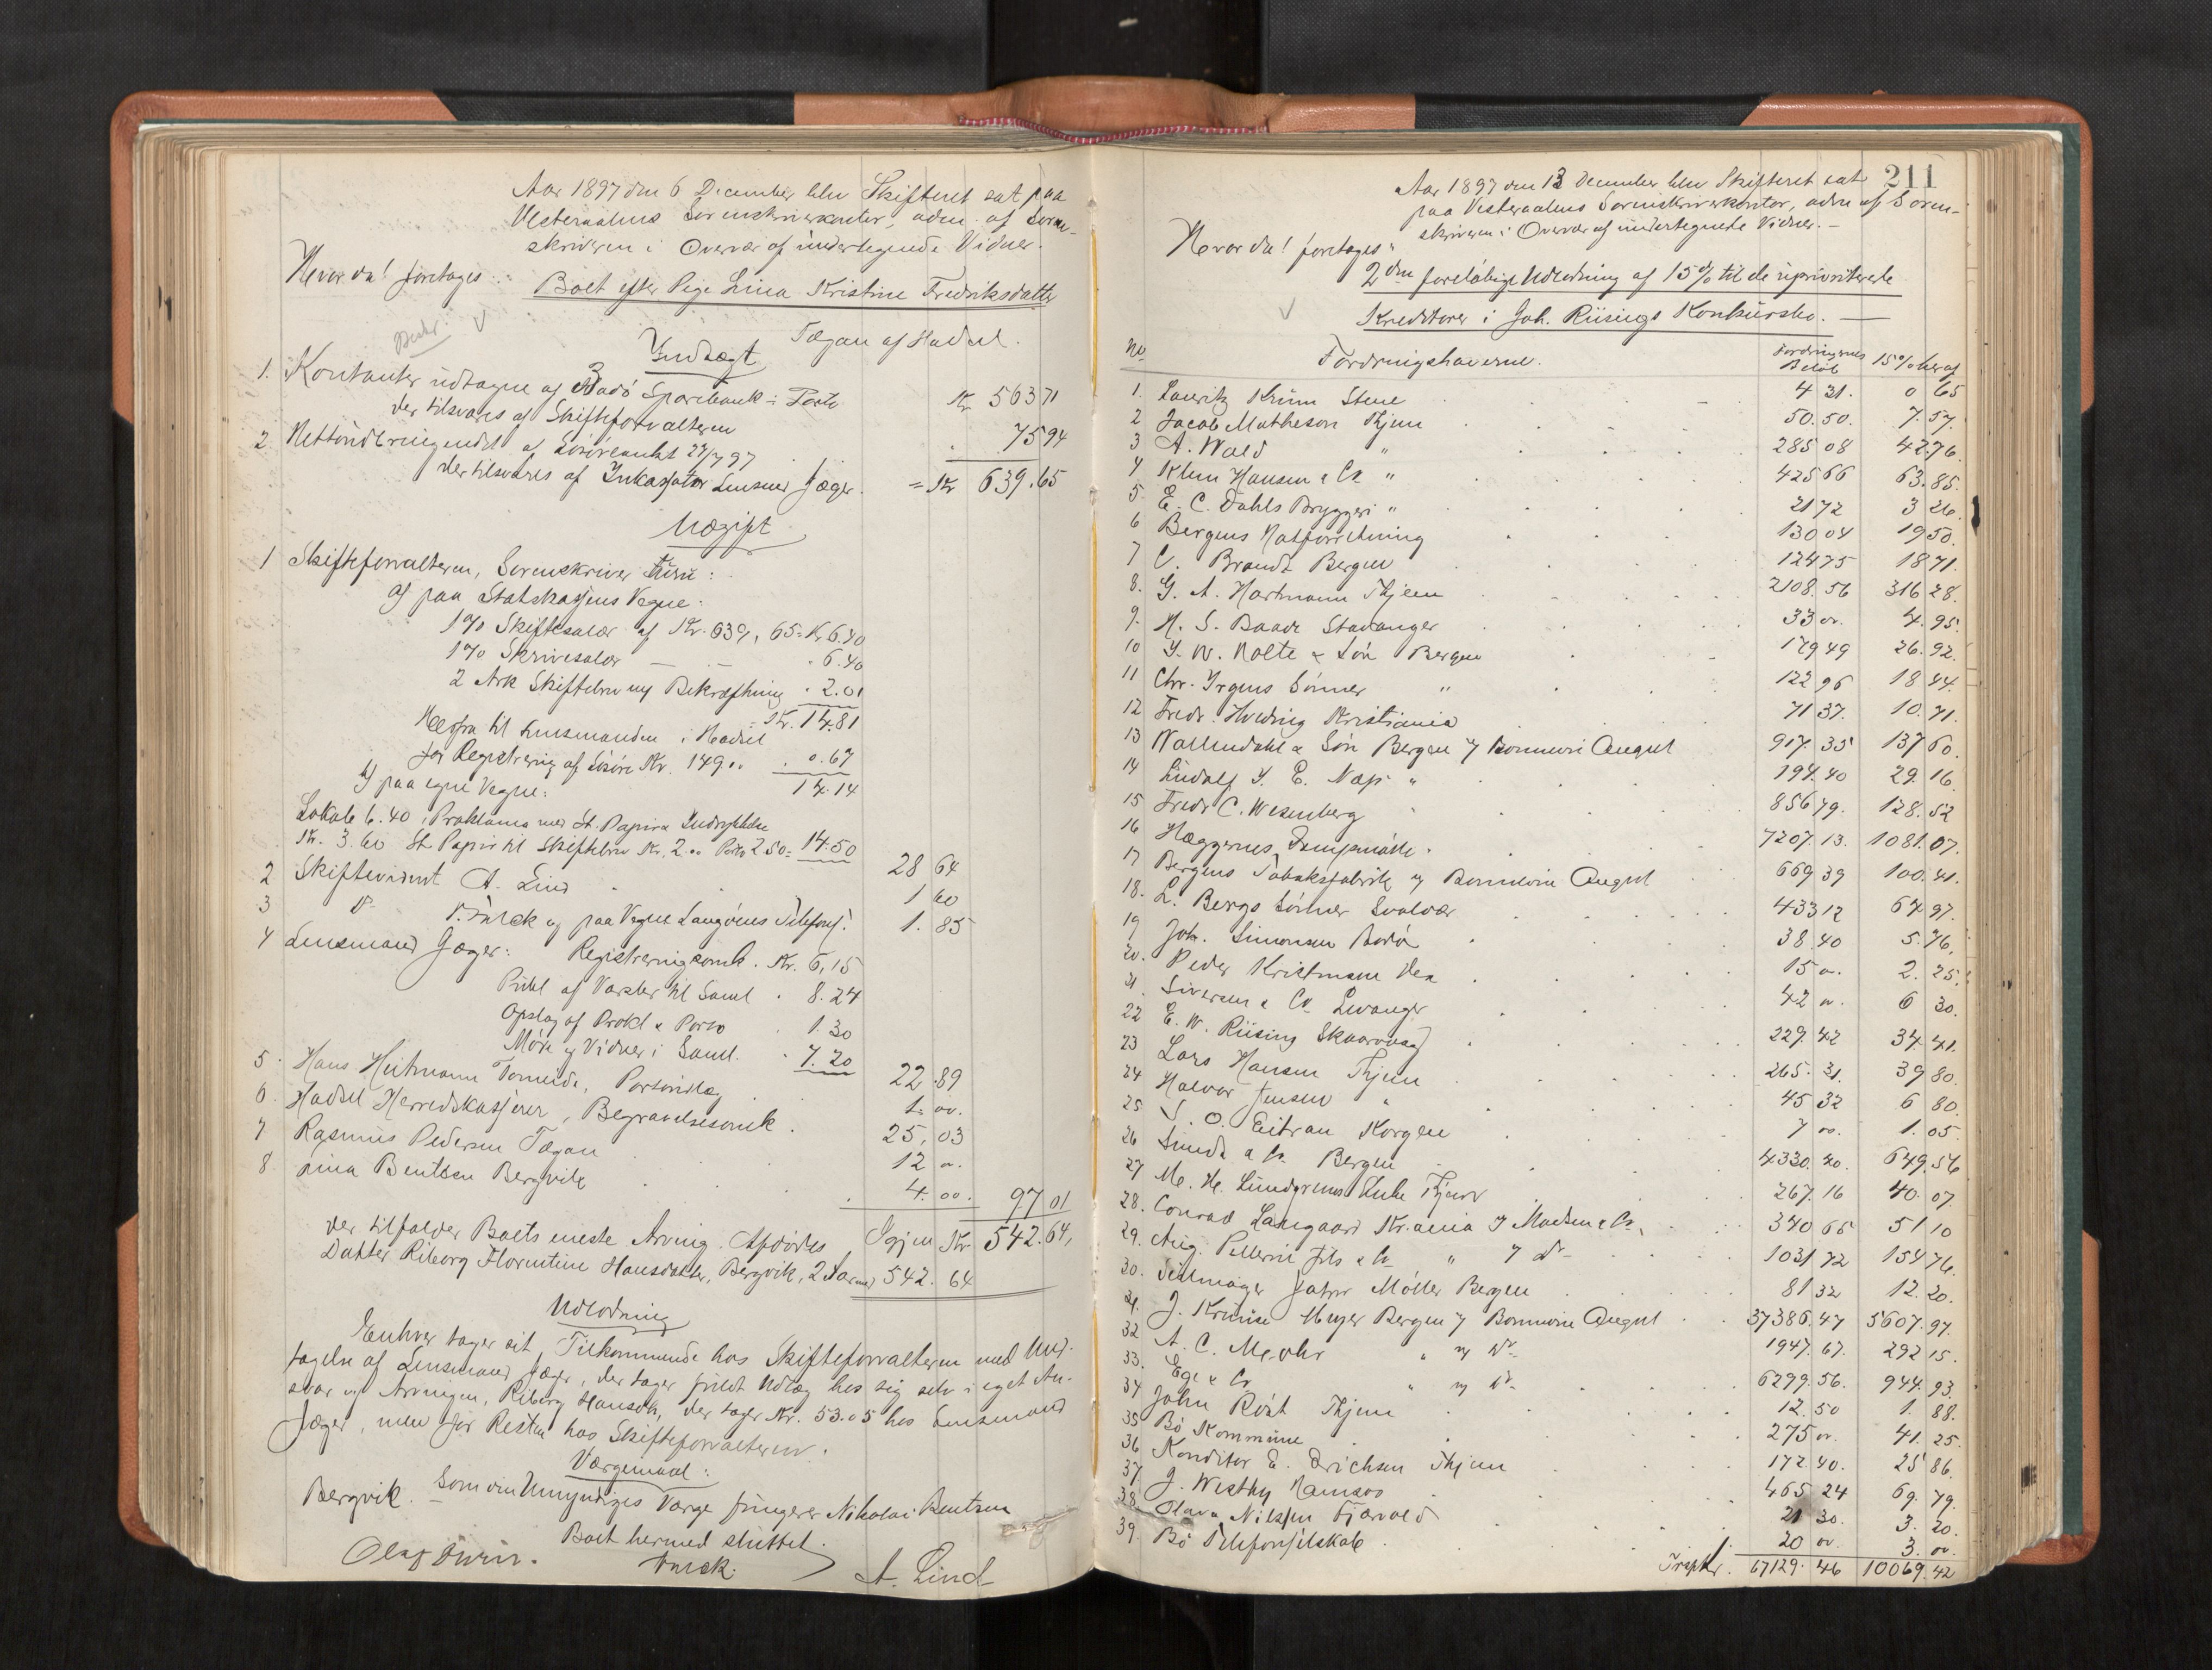 Aar 1897 den 6 December blev Skifteret sat paa
Vesteraalens Sorenskriverkontor, adm. af Soren-
skriveren i Overvær af undertegnede Vidner.
Hvor da! foretages:
Boet efter Pige Lina Kristine Fredriksdatter
Indtægt
1. Kontanter udtagne af Bodö Sparebank i Porto Kr 563 71
der tilsvares af Skifteforvalteren
2. Nettoudbringendet af Lösöreaukt 27/7 97 75 94
der tilsvares af Inkassator Lensmd Jæger. = Kr 639.65
Udgift
1 Skifteforvalteren, Sorenskriver
a/ paa Statskassens Vegne:
1% Skiftesalær af Kr. 639,65 = Kr 6.40
1% Skrivesalær — — 6.40
2 Ark Skiftebrev m/ Bekræftning 2.01
= Kr. 14.81
Herfra til Lensmanden i Hadsel
for Registrering af Lösöre Kr. 149.. 0.67
14.14
b/ paa egne Vegne:
Lokale 6.40, Proklama med St. Papir & Indrykkelse
Kr. 3.60 St Papir til Skiftebrev Kr. 2.. Porto 2.50 = 14.50
28 64
2 Skiftevidnet A. Lind 1 60
3 Do Turck og paa Vegne Langöenes Telefons. 1.85
4 Lensmand Jæger: Registreringsomk. Kr. 6,15
Publ af Varsler til Saml. 8.24
Opslag af Prokl & Porto 1.30
Möde og Vidner i Saml. 7.20
22.89
5. Hans Heitmann Porsonslag 1. oo.
6. Hadsel Herredskasserer, Begravelsesomk. 25,03
7 Rasmus Pedersen Tægan 12 "
8 Lina Bentsen Bergvik 4.oo. 97 01
Igjen Kr 542.64,
der tilfalder Boets eneste Arving Afdödes
Datter Riborg Florentine Hansdatter, Bergvik, 2 Aar med 542.64
Udlodning
Enhver tager sit Tilkommende hos Skifteforvalteren med Und-
tagelse af Lensmand Jæger, der tager fuldt Udlæg hos sig selv i eget An-
svar og Arvingen, Riborg Hansdtr, der tager Kr. 53.05 hos Lensmand
Jæger, men for Resten hos Skifteforvalteren.
Værgemaal:
Som den Umyndiges Værge fungerer Nikolai Bentsen
Bergvik.
Boet hermed sluttet.
Turck. A. Lind
211
Aar 1897 den 13 December blev Skifteret sat
paa Vesteraalens Sorenskriverkontor, adm af Soren-
skriveren i Overvær af undertegnede Vidner.—
Hvor da! foretages:
2den foreløbige Udlodning af 15% til de uprioriterede
Kreditorer i Joh. Riisings Konkursbo. —
No Fordringshaverne. Fordringernes Belöb 15% heraf
1. Lauritz Krüm Stene 4 31. 0 65
2 Jacob Matheson Thjem 50.50. 7.57.
3 A. Wold " 285 08 42.76.
4 Klem Hansen & Co " 425 66 63.85.
5. E. C. Dahls Bryggeri " 21 72 3 26.
6 Bergens Natforretning 130 04 19 50.
7 C. Brandt Bergen 124 75 18 71.
8. G. A. Hartmann Thjem 2108.56 316 28.
9. H. S. Baade Stavanger 33 oo. 4.95.
10 J. W. Nolte & Sön Bergen 179 49 26.92.
11 Chr. Irgens Sönner " 122 96 18 44.
12 Fredr. Hveding Kristiania 71 37. 10.71.
13 Wallendahl & Sön Bergen v/ Bonnevie Angel 917.35 137 60.
14 Ludolf J. E. Næss " 194.40 29.16.
15 Fredr C. Wesenberg 856 79. 128.52
16 Hæggernes Dampmölle 7207.13. 1081.07.
17 Bergens Tobaksfabrik v/ Bonnevie Angel 669 39 100.41.
18. L. Bergs Sönner Svolvær 433 12 64 97.
19 Joh. Simonsen Bodö 38.40 5.76.
20. Peder Kristensen 15 oo. 2.25.
21. Siversen & Co Levanger 42 oo. 6 30.
22 E. W. Riising Skaarvaag 229.42 34.41.
23 Lars Hansen Thjem 265.31. 39 80.
24 Halvor Jensen " 45 32 6 80.
25 S. O. Eitran Korgen 7 oo. 1.05.
26 Sundt & Co Bergen 4330.40. 649.56
27 M. H. Lundgrens Enke Thjem 267.16 40.07.
28. Conrad Langaard Kr.ania v/ Madsen & Co. 340 65 51 10
29. Aug. Pellerin fils & Co " v/ do 1031 72 154 76.
30. Seilmager Jahn Möller Bergen 81 32 12.20.
31. J. Krause Meyer Bergen v/ Bonnevie Angel 37386.47 5607.97.
32 A. C. Mohr " v/ do 1947.67. 292 15.
33. Ege & Co " v/ do 6299.56. 944.93.
34 John Röst Thjem 12.50 1.88.
35 Bö Kommune 275 oo. 41.25.
36 Konditor E. Erichsen Thjem 172.40. 25 86.
37. J. Westby Namsos 465 24 69.79.
38. Olava Nilssen Fjærvold 21 30. 3.20.
39. Bö Telefonselskab 20 oo. 3. oo.
Transp Kr. 67129.46 10069.42